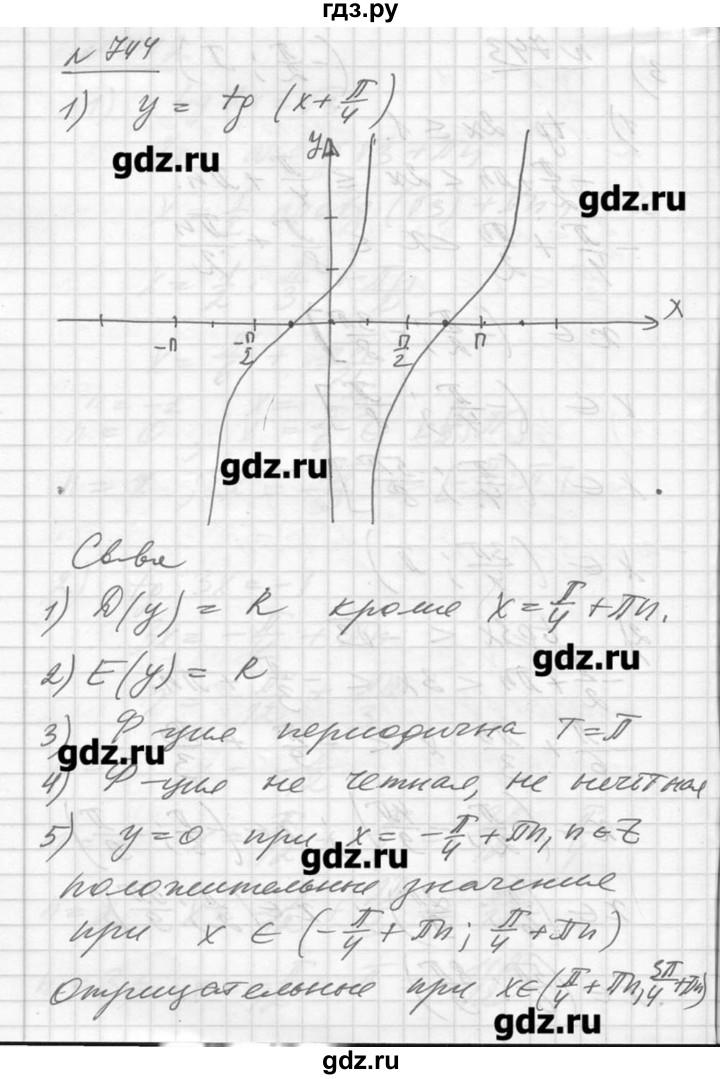 гдз.ру
№ 744
1) y = tg (x + π/4)
gdz.ru
y
gdz.ru
x
-π
-π/2
π/2
π
gdz.ru
Св-ва
1) D(y) = R кроме x = π/4 + πn.
gdz.ru
2) E(y) = R
3) Ф-ция периодична T = π
gdz.ru
4) Ф-ция не четная, не нечётная
5) y = 0 при x = -π/4 + πn, n ∈ Z
gdz.ru
положительные значения
при x ∈ (-π/4 + πn; π/4 + πn)
Отрицательные при x ∈ (π/4 + πn, 3π/4 + πn)
gdz.ru
gdz.ru